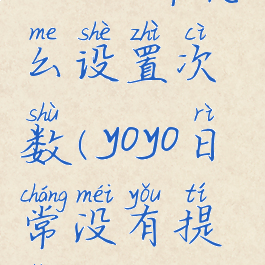 me shè zhì cì
么设置次
shù rì
数(yoyo日
cháng méi yǒu tí
常没有提